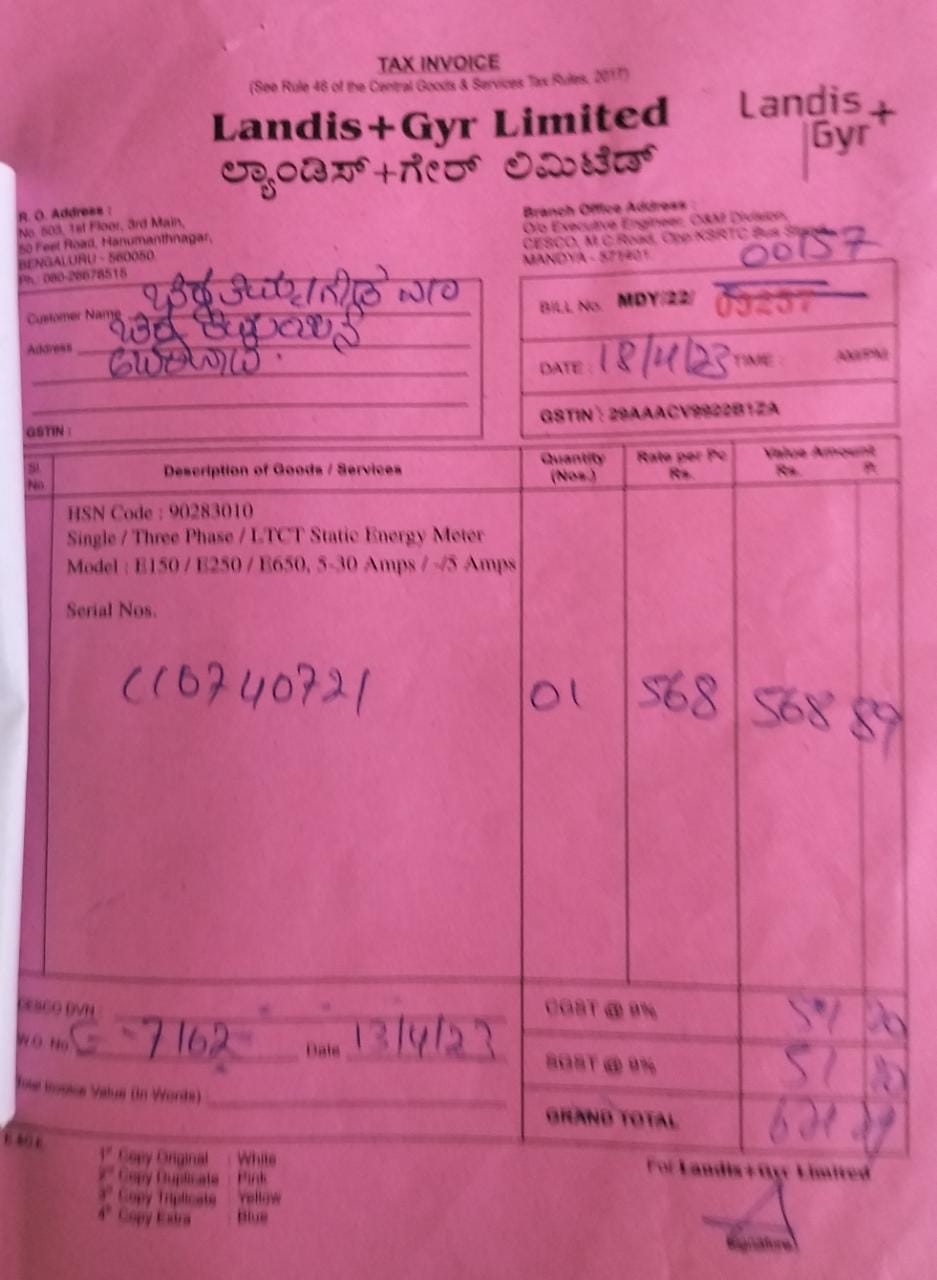 TAX INVOICE
(See Rule 46 of the Central Goods & Services Tax Rules, 2017)
Landis+Gyr Limited
Landis+
Gyr
ಲ್ಯಾಂಡಿಸ್+ಗೇರ್ ಲಿಮಿಟೆಡ್
R. O. Address :
No. 503, 1st Floor, 3rd Main,
50 Feet Road, Hanumanthnagar,
BENGALURU - 560050
Ph.: 080-26678515
Branch Office Address :
O/o Executive Engineer, O&M Division,
CESCO, M.C.Road, Opp.KSRTC Bus
MANDYA - 571401.
00157
Customer Name
Address
GSTIN :
BILL No. MDY/22/
DATE : 18/4/23 TIME : AM/PM
GSTIN : 29AAACV9922B1ZA
Sl. No. Description of Goods / Services Quantity (Nos.) Rate per Pc Rs. Value Amount Rs. P.
HSN Code : 90283010
Single / Three Phase / LTCT Static Energy Meter
Model : E150 / E250 / E650, 5-30 Amps / -/5 Amps
Serial Nos.
01 568 568 89
CESCO DVN :
W.O. No 7162 Date 13/4/23
Total Invoice Value (In Words)
CGST @ 9%
SGST @ 9%
GRAND TOTAL
E.&O.E.
1st Copy Original : White
2nd Copy Duplicate : Pink
3rd Copy Triplicate : Yellow
4th Copy Extra : Blue
For Landis+Gyr Limited
Signature